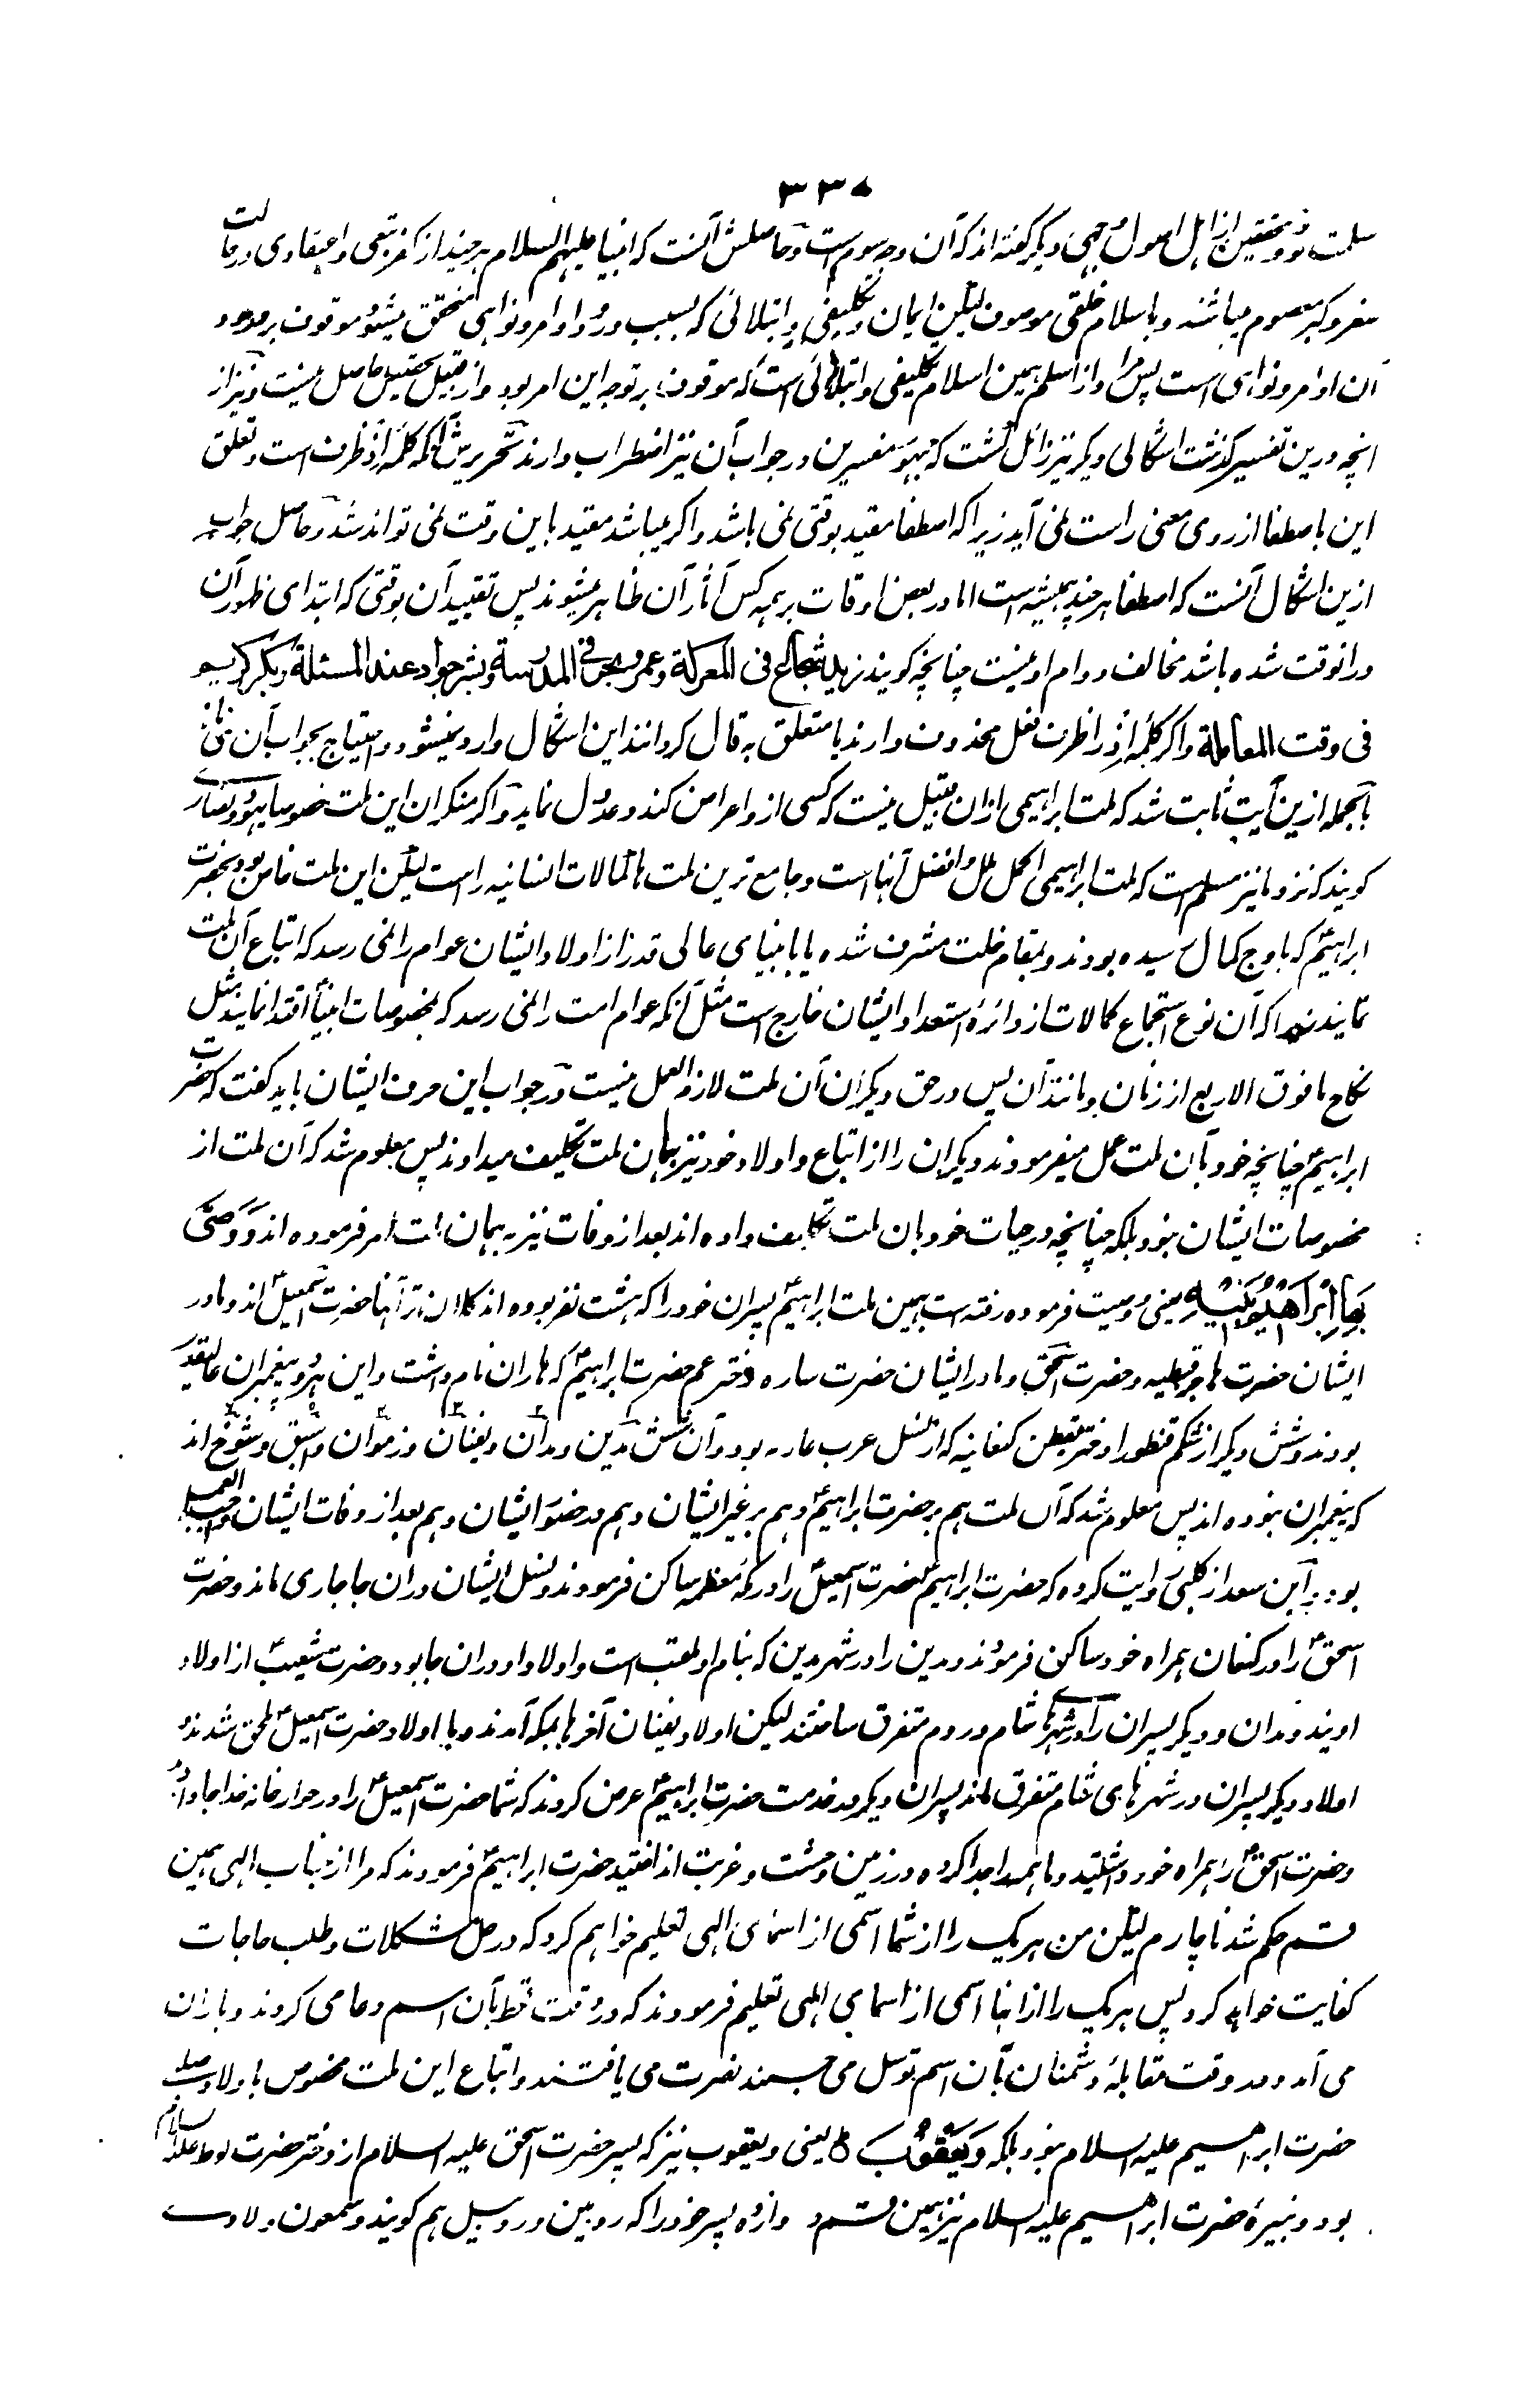 ۳۳۰
ملت شود و محققین از اهل اصول وجهی دیگر گفته اند که آن وجه سوم است و حاصلش آنست که انبیا علیهم السلام هر چند از کفر تبعی و اعتقادی در حالت
صغر و کبر معصوم میباشند و باسلام خلقی موصوف لیکن ایمان تکلیفی و ابتلائی که بسبب ورود اوامر و نواهی متحقق میشود موقوف بر ورود
آن اوامر و نواهی است پس مراد از اسلم همین اسلام تکلیفی و ابتلائی است که موقوف بر توجه این امر بود و از قبیل تحصیل حاصل نیست و نیز از
انچه درین تفسیر گذشت اشکالی دیگر نیز زائل گشت که جمهور مفسرین در جواب آن نیز اضطراب دارند تحریرش آنکه کلمه اذ ظرف است و تعلق
این باصطفا از روی معنی راست نمی آید زیرا که اصطفا مقید بوقتی نمی باشد و اگر میباشد مقید باین وقت نمی تواند شد و حاصل جواب
ازین اشکال آنست که اصطفا هر چند همیشه است اما در بعض اوقات بر همه کس آثار آن ظاهر میشوند پس تقیید آن بوقتی که ابتدای ظهور آن
درانوقت شده باشد مخالف دوام او نیست چنانچه گویند زید شجاع فی المعرکة و عمرو بحر فی المدرسة و بشر جواد عند المسئلة و بکر کریم
فی وقت المعاملة و اگر کلمه اذ را ظرف فعل محذوف دارند یا متعلق به قال گردانند این اشکال وارد نمیشود و احتیاج بجواب آن نمی ماند
بالجمله ازین آیت ثابت شد که ملت ابراهیمی ازان قبیل نیست که کسی ازو اعراض کند و عدول نماید و اگر منکران این ملت خصوصا یهود و نصاری
گویند که نزد ما نیز مسلم است که ملت ابراهیمی اکمل ملل و افضل آنها است و جامع ترین ملت ها کمالات انسانیه راست لیکن این ملت خاص بود بحضرت
ابراهیمؑ که باوج کمال رسیده بودند و بمقام خلت مشرف شده یا بانبیای عالی قدر از اولاد ایشان عوام را نمی رسد که اتباع آن ملت
نمایند زیراکه آن نوع استجماع کمالات از دائرهٔ استعداد ایشان خارج است مثل آنکه عوام امت را نمی رسد که بخصوصیات انبیأ اقتدا نمایند مثل
نکاح ما فوق الاربع از زنان و مانند آن پس در حق دیگران آن ملت لازم العمل نیست در جواب این حرف ایشان باید گفت که حضرت
ابراهیمؑ چنانچه خود بآن ملت عمل میفرمودند دیگران را از اتباع و اولاد خود نیز بهمان ملت تکلیف میدادند پس معلوم شد که آن ملت از
مخصوصات ایشان نبود بلکه چنانچه در حیات خود بان ملت تکلیف داده اند بعد از وفات نیز به همان ملت امر فرموده اند وَوَصَّی
بِهَا اِبْرَاهِیْمُ بَنِیْهِ یعنی وصیت فرموده رفته است بهمین ملت ابراهیمؑ پسران خود را که هشت نفر بوده اند کلان تر آنها حضرت اسمعیلؑ اند و مادر
ایشان حضرت هاجر قبطیه و حضرت اسحقؑ و مادر ایشان حضرت ساره دختر عم حضرت ابراهیمؑ که هاران نام داشت و این هر دو پیغمبران عالیقدر
بودند و شش دیگر از شکم قنطورا دختر یقطن کنعانیه که از نسل عرب عاربه بود و آن شش مدین و مدان و یفنان و زموان و اشبق و شوخ اند
که پیغمبران نبوده اند پس معلوم شد که آن ملت هم بر حضرت ابراهیمؑ و هم بر غیر ایشان و هم در حضور ایشان و هم بعد از وفات ایشان واجب العمل
بود ابن سعد از کلبی روایت کرده که حضرت ابراهیمؑ حضرت اسمعیلؑ را در مکه معظمه ساکن فرمودند و نسل ایشان دران جا جاری ماند و حضرت
اسحقؑ را در کنعان همراه خود ساکن فرمودند و مدین را در شهر مدین که بنام او ملقب است و اولاد او دران جا بود و حضرت شعیبؑ از اولاد
اویند و مدان و دیگر پسران را در شهرهای شام و روم متفرق ساختند لیکن اولاد یفنان آخرها بمکه آمدند و با اولاد حضرت اسمعیلؑ ملحق شدند و
اولاد دیگر پسران در شهرهای شام متفرق ماند پسران دیگر در خدمت حضرت ابراهیمؑ عرض کردند که شما حضرت اسمعیلؑ را در جوار خانه خدا جا دادید
و حضرت اسحقؑ را همراه خود داشتید و ما همه را جدا کرده در زمین وحشت و غربت انداختید حضرت ابراهیمؑ فرمودند که مرا از جناب الهی همین
قسم حکم شد ناچارم لیکن من هر یک را از شما اسمی از اسمای الهی تعلیم خواهم کرد که در حل مشکلات و طلب حاجات
کفایت خواهد کرد پس هر یک را از اینها اسمی از اسمای الهی تعلیم فرمودند که در وقت قحط بآن اسم دعا می کردند و باران
می آمد و در وقت مقابلهٔ دشمنان بآن اسم توسل می جستند نصرت می یافتند و اتباع این ملت مخصوص باولاد صلب
حضرت ابراهیم علیه السلام نبود بلکه وَیَعْقُوْبُ ط یعنی و یعقوب نیز که پسر حضرت اسحق علیه السلام از دختر حضرت لوط علیه السلام
بود و نبیرهٔ حضرت ابراهیم علیه السلام نیز همین قسم دوازده پسر خود را که روبین و روبیل هم گویند و شمعون و لاوی